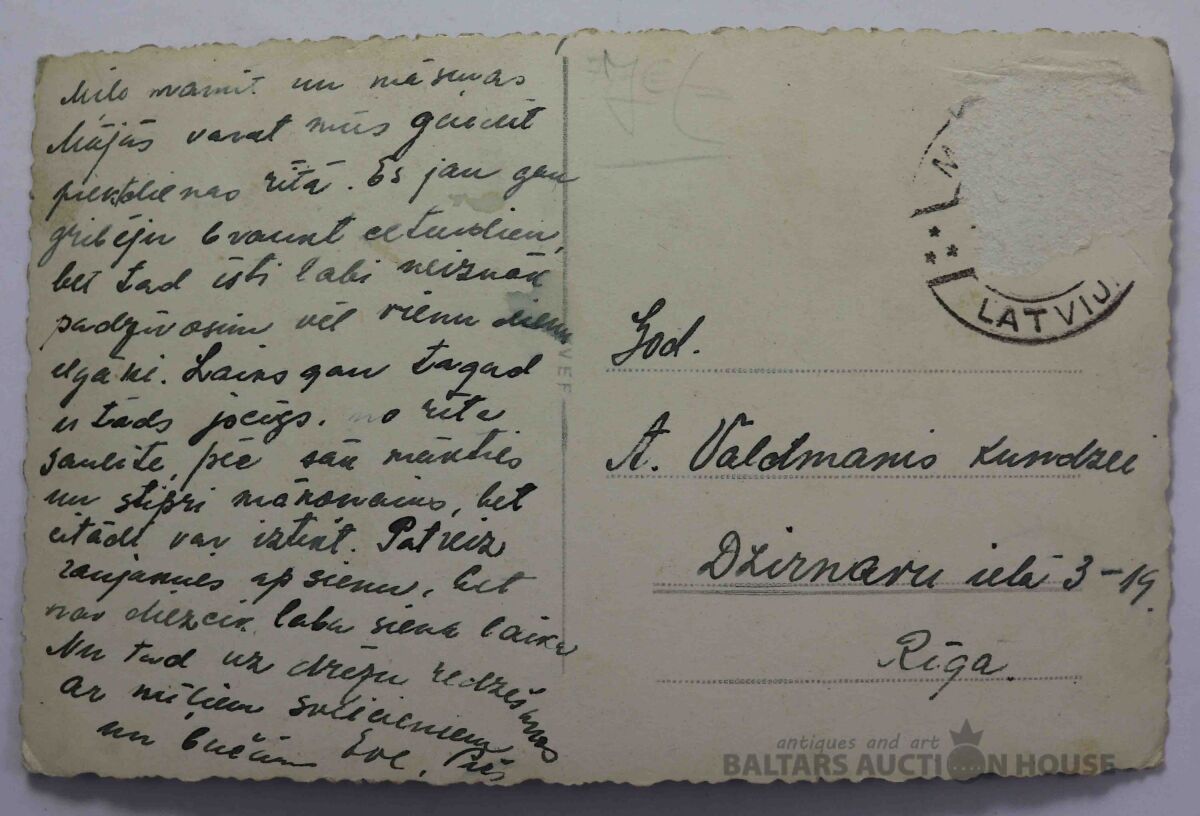 Mīļo mamit un māsiņas
Mājās varat mūs gaidīt
piektdienas rītā. Es jau gan
gribēju braukt ceturdien,
bet tad īsti labi neiznāk
padzīvosim vēl vienu dienu
ilgāki. Laiks gan tagad
ir tāds jocīgs. no rīta
saulīte, pēc sāk mākties
un stipri mākonains, bet
citādi var iztikt. Patreiz
raujamies ap sienu, bet
nav diezcik laba siena laika
Nu tad uz drēzu redzēšanos
Ar mīļiem sveicieniem
un bučām Eve.
7€
God.
A. Valdmanis kundzei
Dzirnavu ielā 3-19.
Rīga.
VEF
M
LATVIJ
antiques and art
BALTARS AUCTION HOUSE